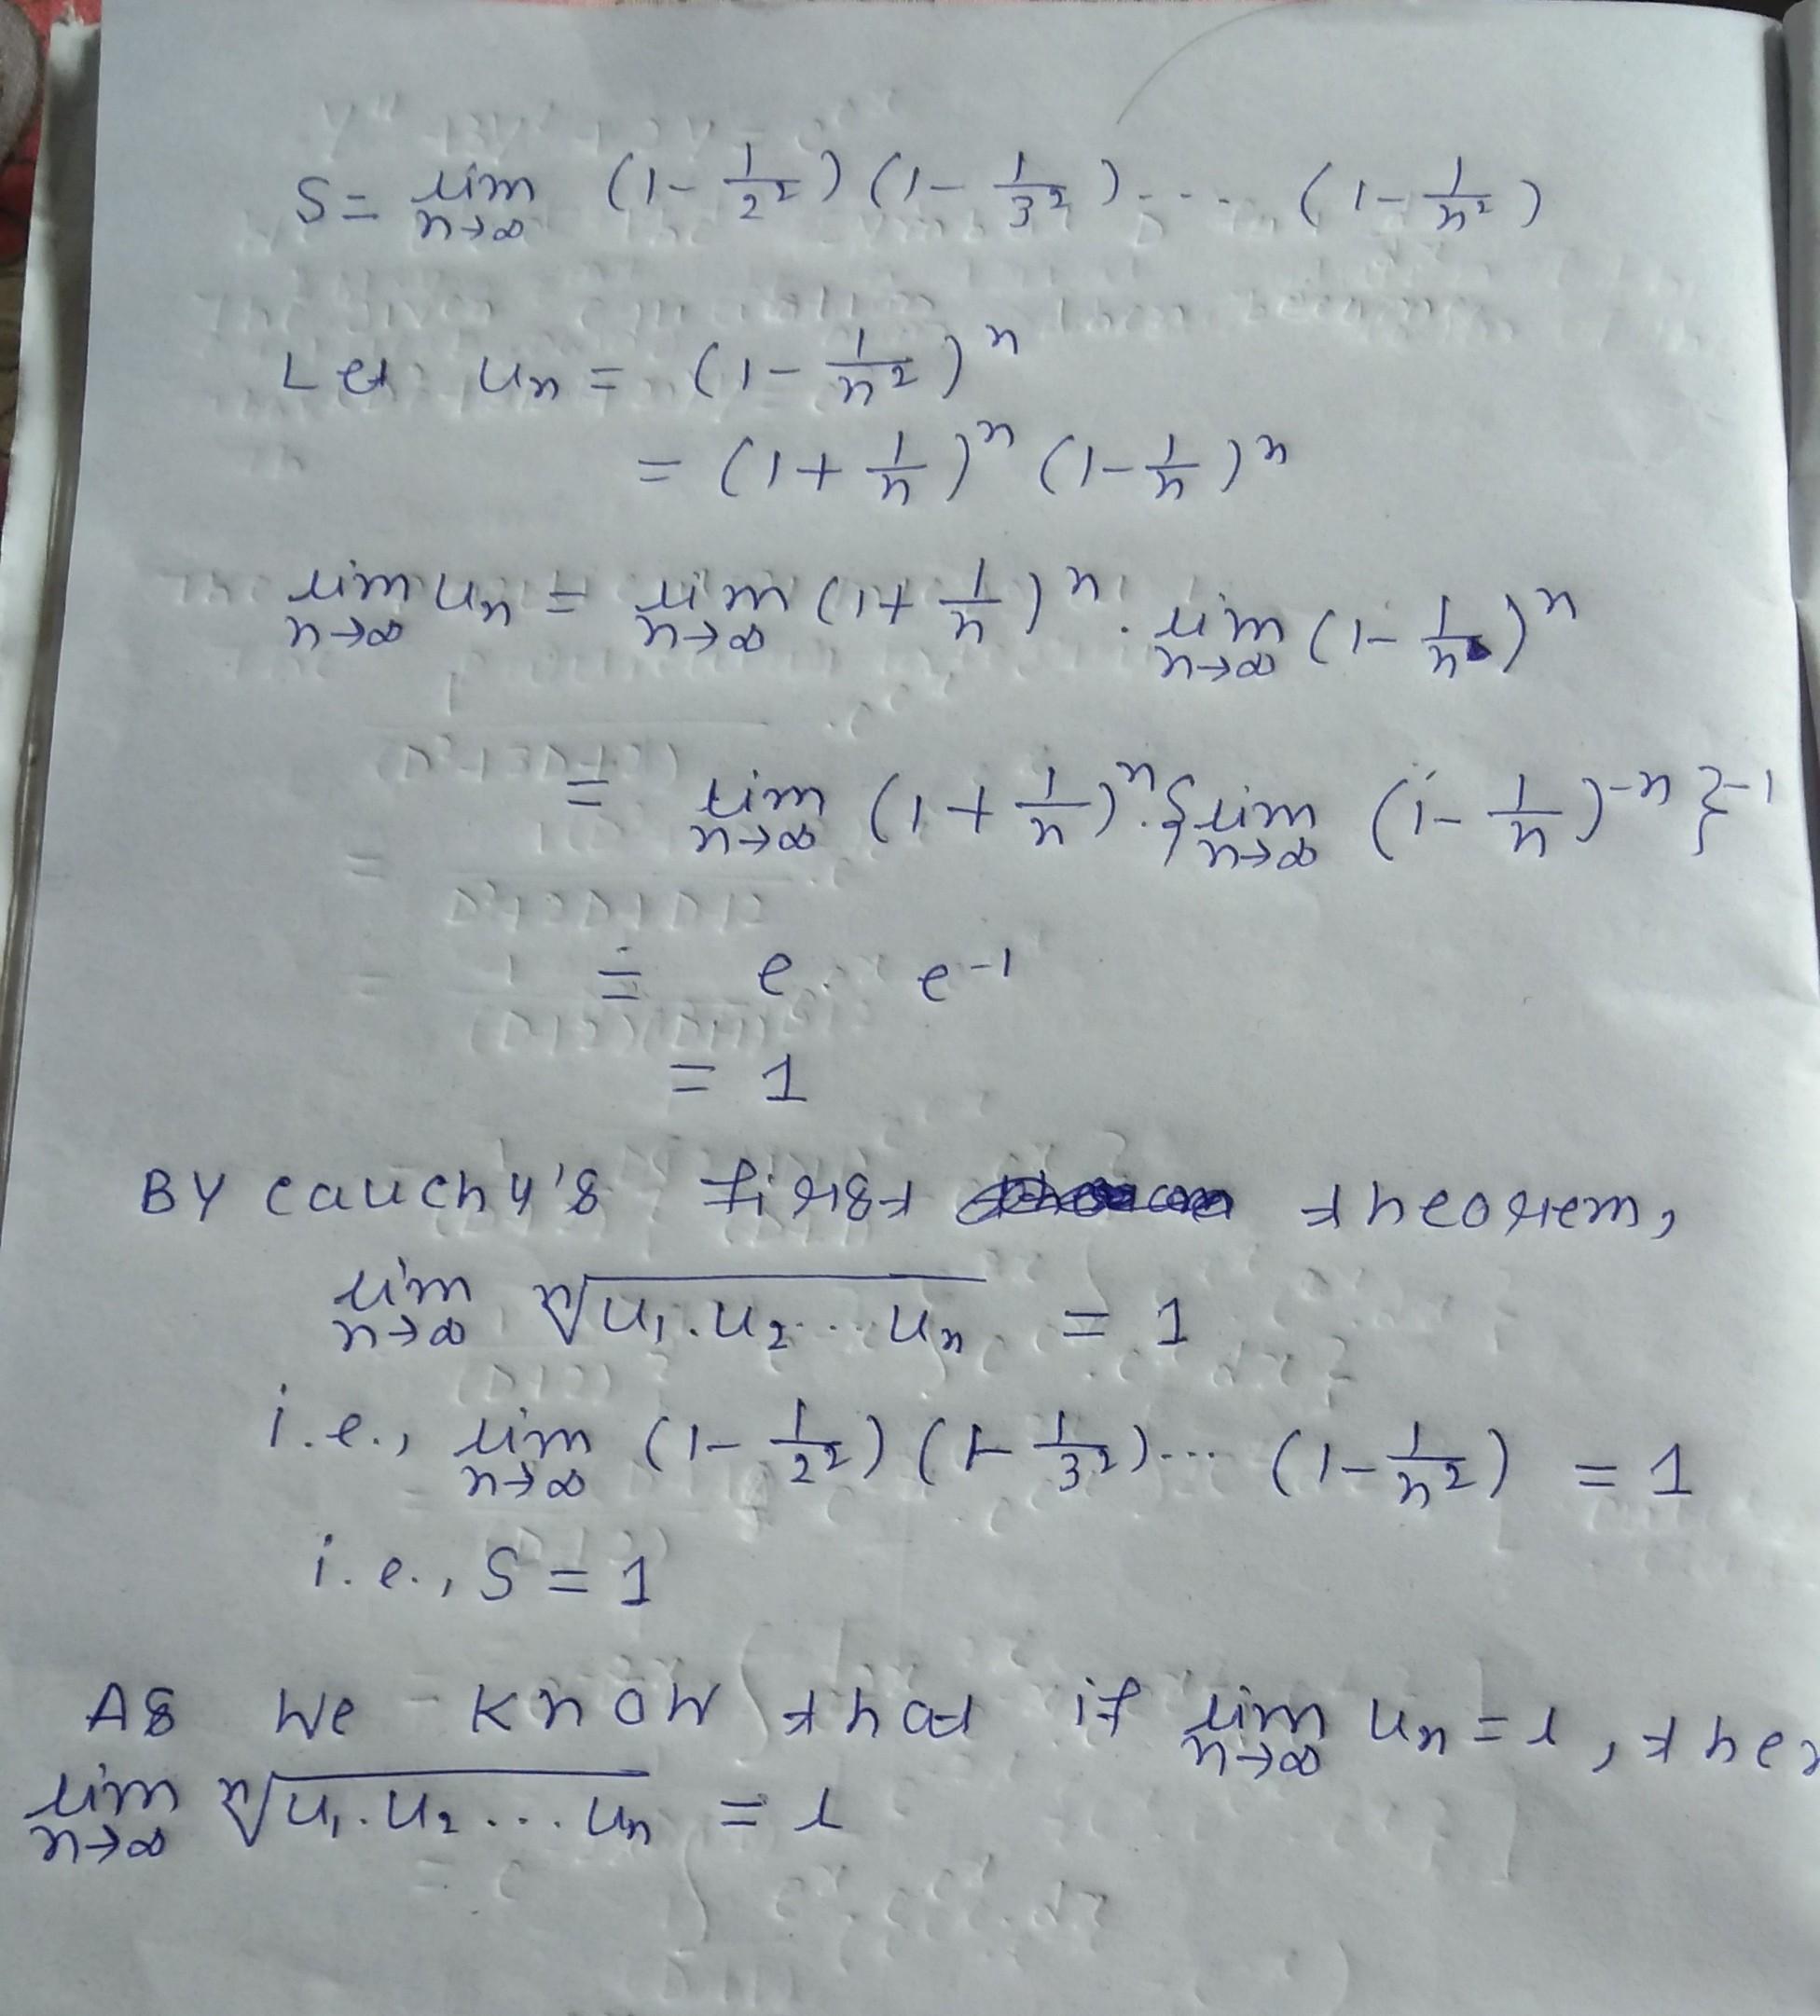 S = lim n→∞ (1 - 1/2²) (1 - 1/3²) ..... (1 - 1/n²)
Let uₙ = (1 - 1/n²)ⁿ
= (1 + 1/n)ⁿ (1 - 1/n)ⁿ
lim n→∞ uₙ = lim n→∞ (1 + 1/n)ⁿ . lim n→∞ (1 - 1/n)ⁿ
= lim n→∞ (1 + 1/n)ⁿ . { lim n→∞ (1 - 1/n)⁻ⁿ }⁻¹
= e . e⁻¹
= 1
BY cauchy's first theorem,
lim n→∞ ⁿ√(u₁ . u₂ ... uₙ) = 1
i.e., lim n→∞ (1 - 1/2²) (1 - 1/3²) ... (1 - 1/n²) = 1
i.e., S = 1
As we know that if lim n→∞ uₙ = l, then
lim n→∞ ⁿ√(u₁ . u₂ ... uₙ) = l